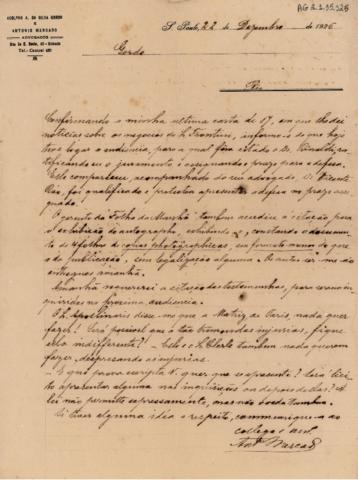 AG 2.1.95.928
ADOLPHO A. DA SILVA GORDO
E
ANTONIO MERCADO
ADVOGADOS
S. Paulo, 22 de Dezembro de 1926
Gordo
Confirmando a minha ultima carta de 17, em que dei
noticias sobre os negocios do informo-o de que hoje
teve logar a audiencia, para a qual fôra citado o Dr. Rinaldi, ra-
tificando eu o juramento e assignando o prazo para a defesa.
Este compareceu, acompanhado do seu advogado, Dr. Vicente
Ráo, foi qualificado e protestou apresentar a defesa no prazo assi-
gnado.
O gerente da Folha da Manhã tambem accedeu á citação para
a exhibição do autographo, exhibindo-o, constando o documen-
to de 4 folhas de copias photographicas, em formato menor do que
o da publicação, sem legalização alguma. Os autos ser-me-ão
entregues amanhã.
Amanhã requererei a citação das testemunhas, para serem in-
quiridas na proxima audiencia.
disse-me que a Matriz de Paris, nada quer
fazer! Será possivel que a tão tremendas injurias, fique
ella indifferente? tambem nada querem
fazer, desprezando as injurias.
E que prova quer que se apresente? Será lici-
to apresentar alguma nas ou depois dellas? A
lei não permitte expressamente, mas não o véda tambem.
Si tiver alguma idéa a respeito, communique-a ao
collega e amº
Antº Mercado